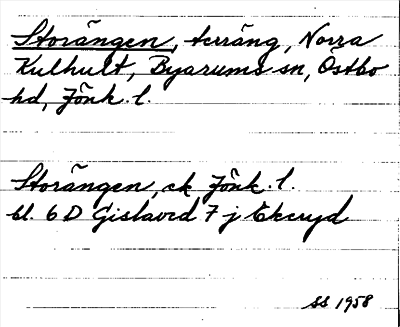 Storängen, terräng, Norra
Kulhult, Byarums sn, Östbo
hd, Jönk. l.
Storängen, ek Jönk. l.
bl. 6 D Gislaved 7 j Ekeryd
SS 1958